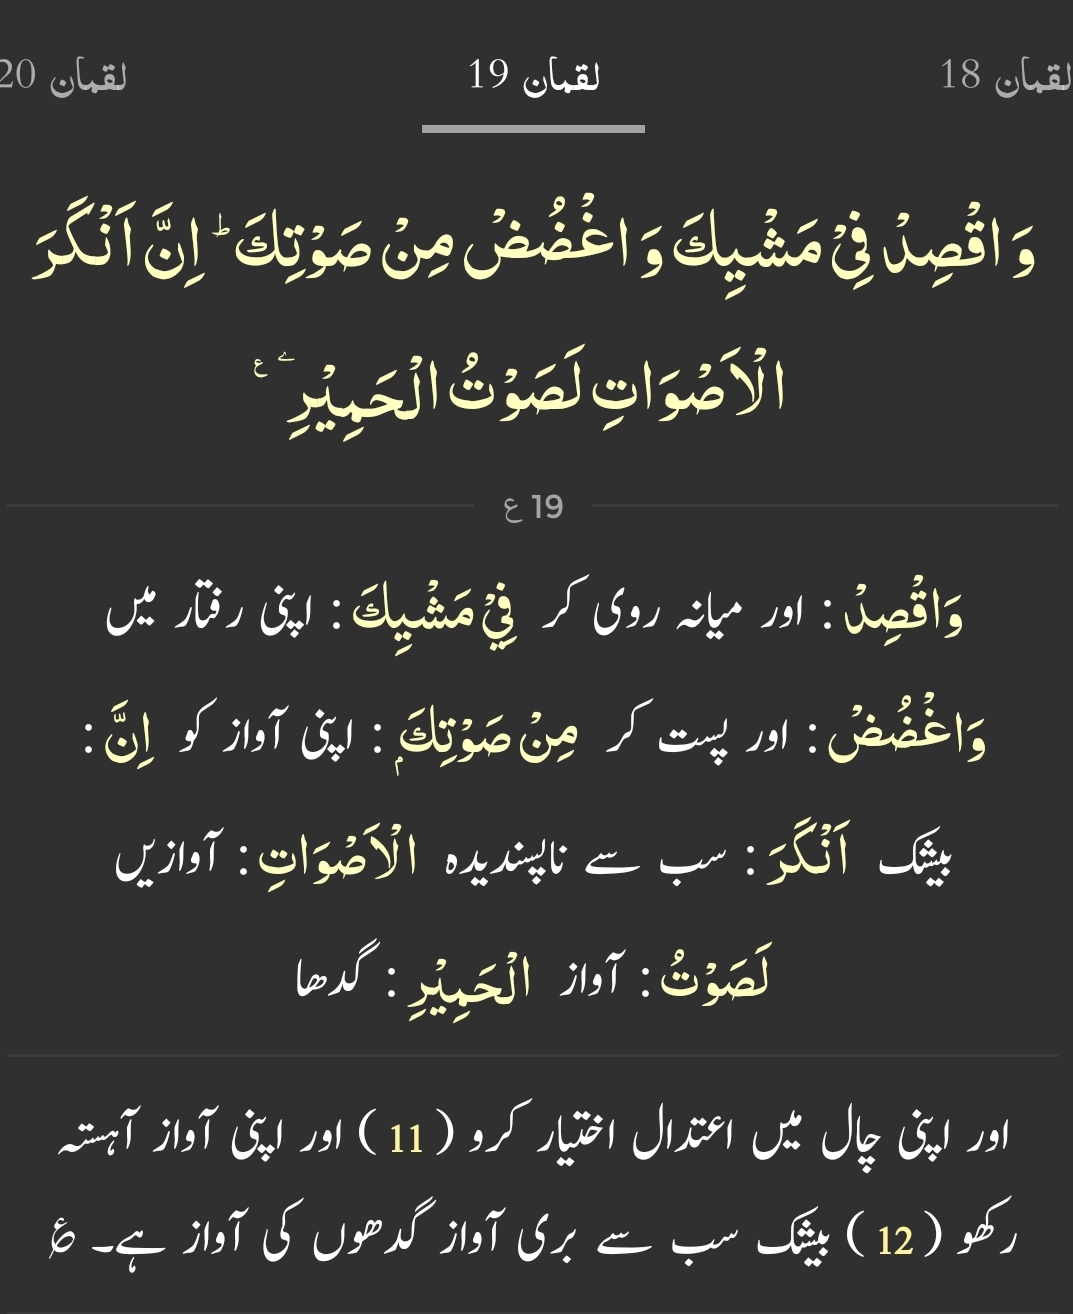 لقمان 18 لقمان 19 لقمان 20
وَ اقْصِدْ فِیْ مَشْیِكَ وَ اغْضُضْ مِنْ صَوْتِكَ ؕ اِنَّ اَنْكَرَ
الْاَصْوَاتِ لَصَوْتُ الْحَمِیْرِ ۠ ع
19 ع
وَاقْصِدْ : اور میانہ روی کر فِيْ مَشْيِكَ : اپنی رفتار میں
وَاغْضُضْ : اور پست کر مِنْ صَوْتِكَ ۭ : اپنی آواز کو اِنَّ :
بیشک اَنْكَرَ : سب سے ناپسندیدہ الْاَصْوَاتِ : آوازیں
لَصَوْتُ : آواز الْحَمِيْرِ : گدھا
اور اپنی چال میں اعتدال اختیار کرو ( 11 ) اور اپنی آواز آہستہ
رکھو ( 12 ) بیشک سب سے بری آواز گدھوں کی آواز ہے۔ ؏